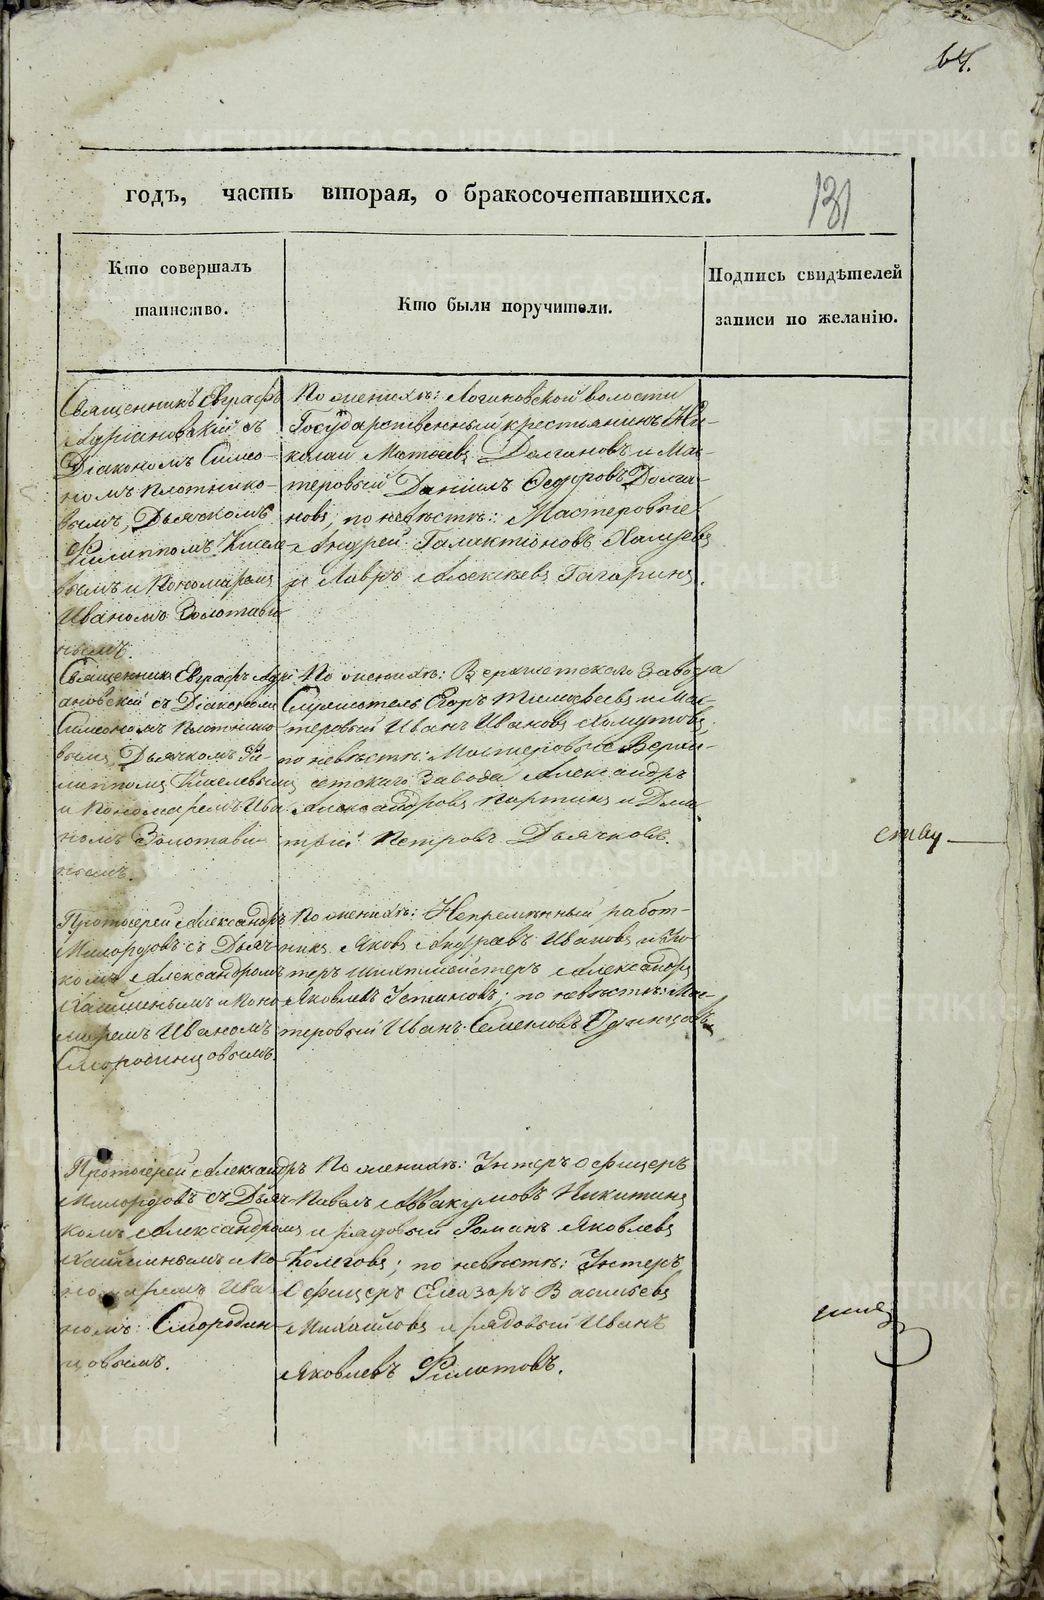 64.
годъ, часть вторая, о бракосочетавшихся.
131
Кто совершалъ
таинство.
Кто были поручители.
Подпись свидѣтелей
записи по желанію.
Священникъ Евграфъ
съ
Діакономъ Симео-
номъ Плотнико-
вымъ, Дьячкомъ
Филиппомъ Кисел-
евымъ и Пономаремъ
Иваномъ Золотави-
нымъ.
По женихѣ: Логиновской волости
Государственный крестьянинъ Ни-
колай Матвѣевъ Долгановъ и Мас-
теровый Даніилъ Федоровъ Долга-
новъ; по невѣстѣ: Мастеровые
Андрей Галактіоновъ
и Лавръ Алексѣевъ Гагаринъ.
Священникъ Евграфъ
съ Діакономъ
Симеономъ Плотнико-
вымъ, Дьячкомъ Фи-
липпомъ Киселевымъ
и Пономаремъ Ива-
номъ Золотави-
нымъ.
По женихѣ: Верхисетскаго Завода
Служитель Егоръ Тимофеевъ и Мас-
теровый Иванъ Ивановъ Хомутовъ,
по невѣстѣ: Мастеровые Верхи-
сетскаго Завода Александръ
Александровъ Партинъ и Дми-
трій Петровъ Дьячковъ.
ству
Протоіерей Александръ
Милордовъ съ Дьяч-
комъ Александромъ
и Поно-
маремъ Иваномъ
Смородинцовымъ.
По женихѣ: Непремѣнный работ-
никъ Яковъ Ивановъ и Ун-
теръ шихтмейстеръ Александръ
Яковлевъ Устиновъ; по невѣстѣ: Мас-
теровый Иванъ Семеновъ Одинцовъ
Протоіерей Александръ
Милордовъ съ Дьяч-
комъ Александромъ
и По-
номаремъ Ива-
номъ Смородин-
цовымъ.
По женихѣ: Унтеръ офицеръ
Павелъ Аввакумовъ Никитинъ
и рядовый Романъ Яковлевъ
Колеговъ; по невѣстѣ: Унтеръ
Офицеръ Елазаръ Васильевъ
Михайловъ и рядовый Иванъ
Яковлевъ Филатовъ.